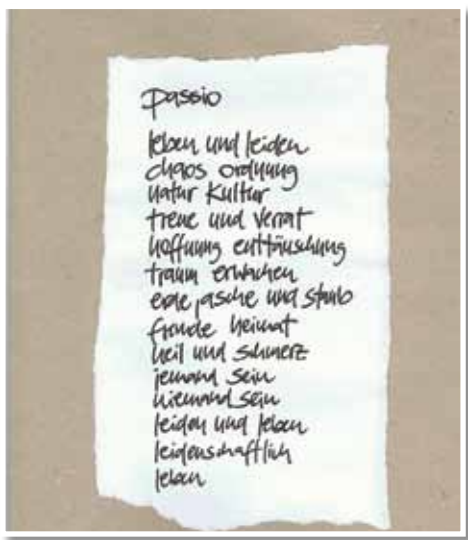 passio
leben und leiden
chaos ordnung
natur kultur
treue und verrat
hoffnung enttäuschung
traum erwachen
erde, asche und staub
fremde heimat
heil und schmerz
jemand sein
niemand sein
leiden und leben
leidenschaftlich
leben